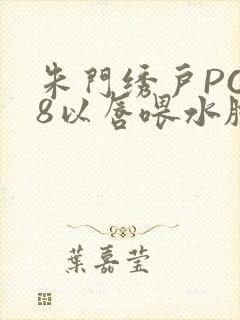 朱門绣户PO
8以唇喂水
葉嘉莹